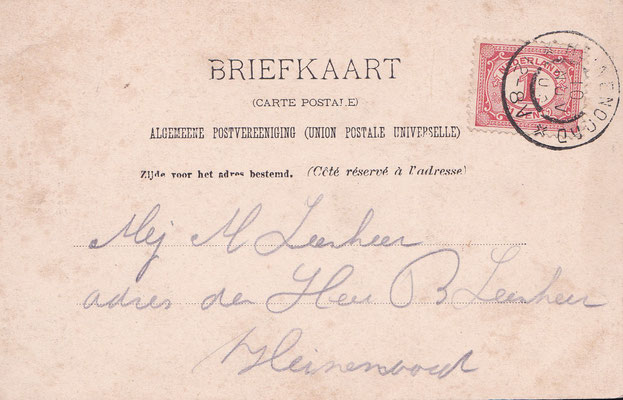 BRIEFKAART
(CARTE POSTALE)
ALGEMEENE POSTVEREENIGING (UNION POSTALE UNIVERSELLE)
Zijde voor het adres bestemd. (Côté réservé à l'adresse)
NEDERLAND
1
CENT
HEINENOORD
Mej M Leenheer
adres den Heer B Leenheer
Heinenoord